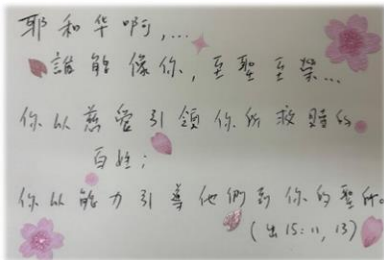 耶和华啊,...
誰能像你,至聖至榮...
你以慈愛引領你所救贖的
百姓;
你以能力引導他們到你的聖所。
(出15:11, 13)